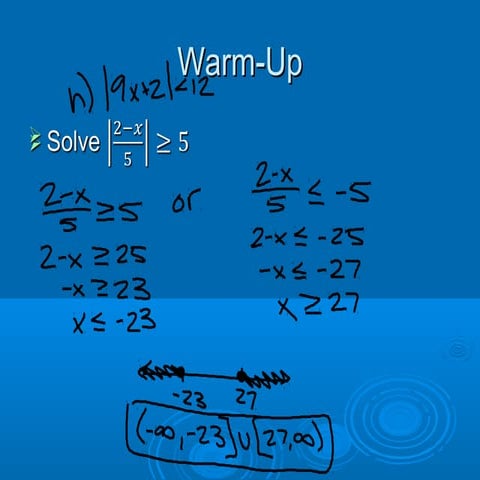 Warm-Up
h) |9x+2|<12
Solve |(2−x)/5| ≥ 5
(2-x)/5 ≥ 5 or (2-x)/5 ≤ -5
2-x ≥ 25 2-x ≤ -25
-x ≥ 23 -x ≤ -27
x ≤ -23 x ≥ 27
-23 27
(-∞,-23]∪[27,∞)